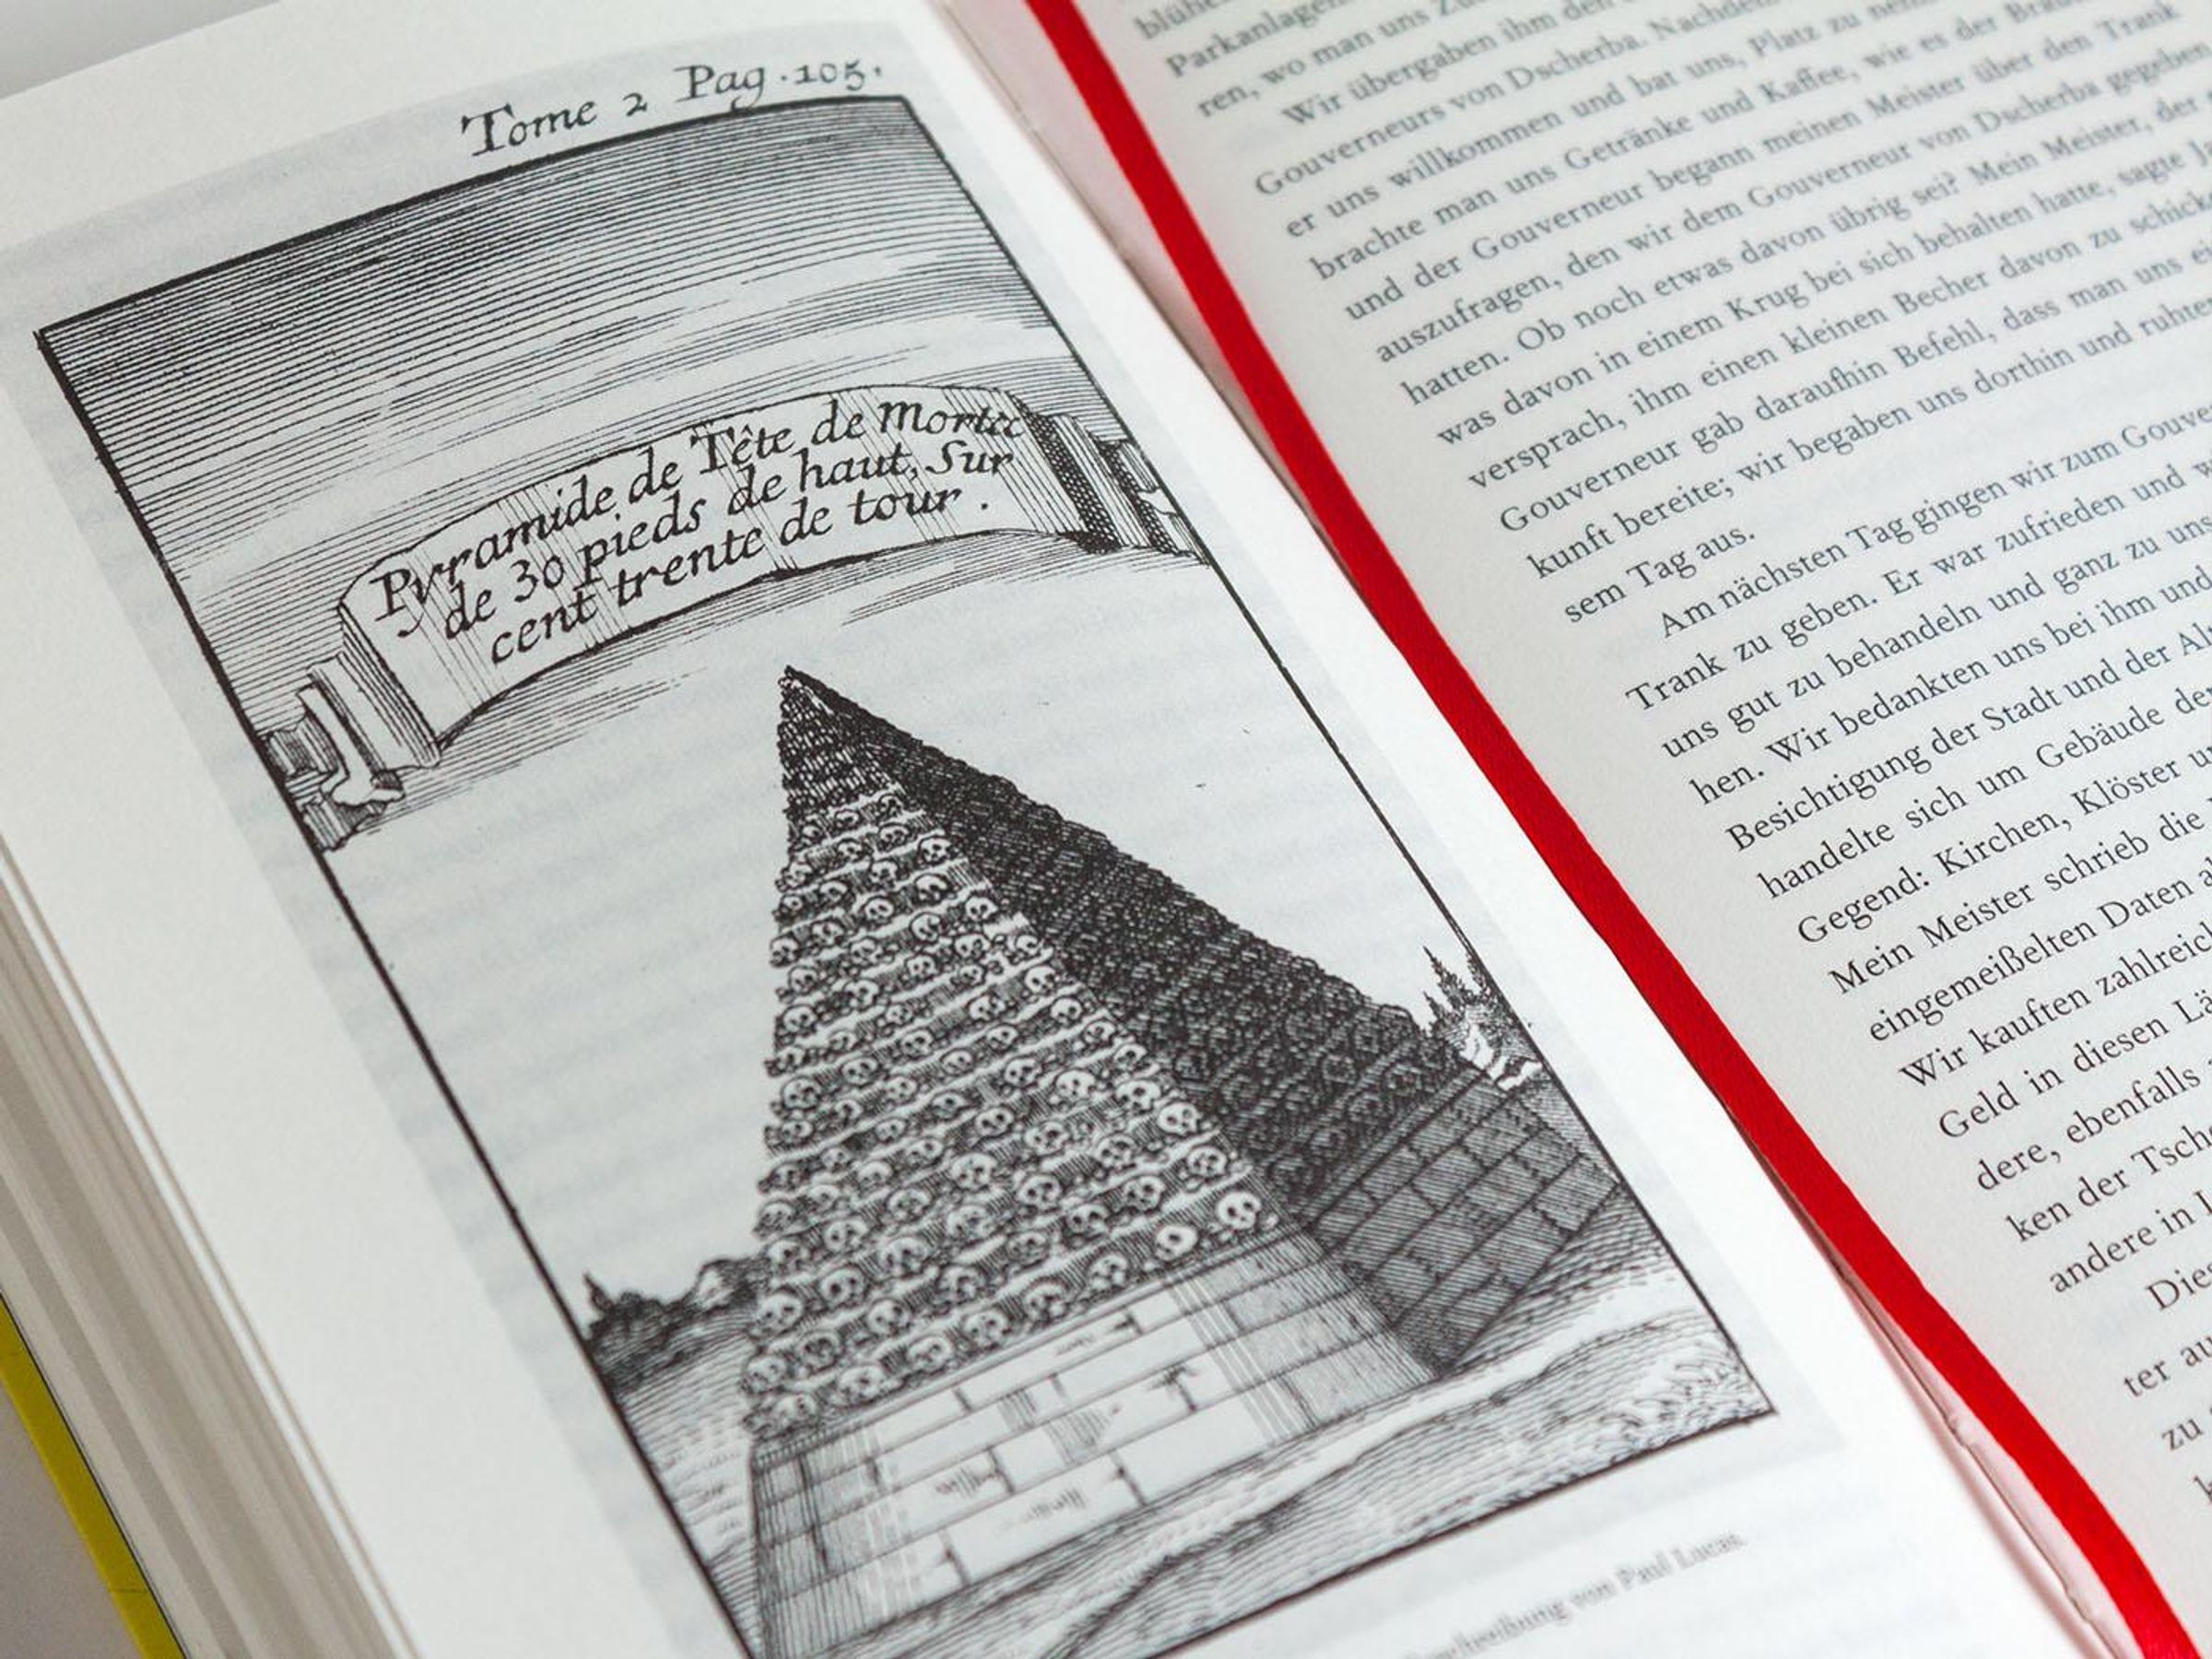 Tome 2 Pag. 105.
Pyramide de Tête de morte
de 30 pieds de haut, Sur
cent trente de tour.
von Paul Lucas.
Parkanlagen
ren, wo man uns
Wir übergaben ihm den
Gouverneurs von Dscherba. Nachdem
er uns willkommen und bat uns, Platz zu
brachte man uns Getränke und Kaffee, wie es der
und der Gouverneur begann meinen Meister über den Trank
auszufragen, den wir dem Gouverneur von Dscherba gegeben
hatten. Ob noch etwas davon übrig sei? Mein Meister, der
was davon in einem Krug bei sich behalten hatte, sagte
versprach, ihm einen kleinen Becher davon zu
Gouverneur gab daraufhin Befehl, dass man uns
kunft bereite; wir begaben uns dorthin und
sem Tag aus.
Am nächsten Tag gingen wir zum
Trank zu geben. Er war zufrieden und
uns gut zu behandeln und ganz zu
hen. Wir bedankten uns bei ihm und
Besichtigung der Stadt und der
handelte sich um Gebäude
Gegend: Kirchen, Klöster
Mein Meister schrieb die
eingemeißelten Daten
Wir kauften
Geld in diesen
dere, ebenfalls
ken der
andere in
ter
zu